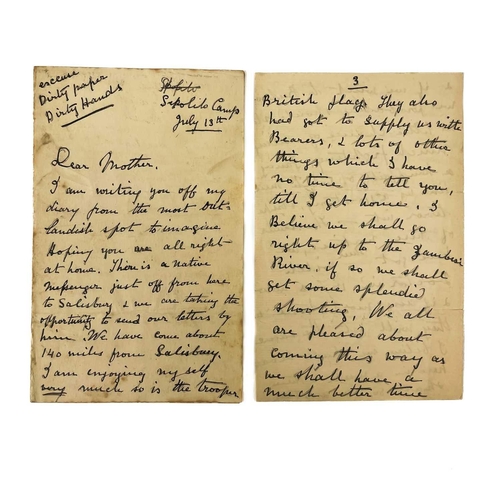 excuse
Dirty paper
Dirty Hands
Sipolilo Camp
July 13th
Dear Mother,
I am writing you off my
diary from the most Out-
landish spot to imagine
Hoping you are all right
at home. There is a native
messenger just off from here
to Salisbury & we are taking the
opportunity to send our letters by
him. We have come about
140 miles from Salisbury.
I am enjoying my self
very much so is the trooper
3
British flag. They also
had got to supply us with
Bearers, & lots of other
things which I have
no time to tell you,
till I get home. I
Believe we shall go
right up to the Zambesi
River, if so we shall
get some splendid
shooting, We all
are pleased about
coming this way as
we shall have a
much better time